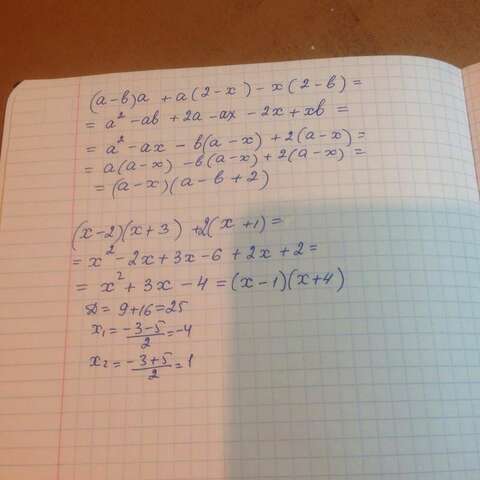 (a-b)a + a(2-x) - x(2-b) =
= a² - ab + 2a - ax - 2x + xb =
= a² - ax - b(a-x) + 2(a-x) =
= a(a-x) - b(a-x) + 2(a-x) =
= (a-x)(a-b+2)
(x-2)(x+3) + 2(x+1) =
= x² - 2x + 3x - 6 + 2x + 2 =
= x² + 3x - 4 = (x-1)(x+4)
D = 9+16 = 25
x₁ = (-3-5)/2 = -4
x₂ = (-3+5)/2 = 1